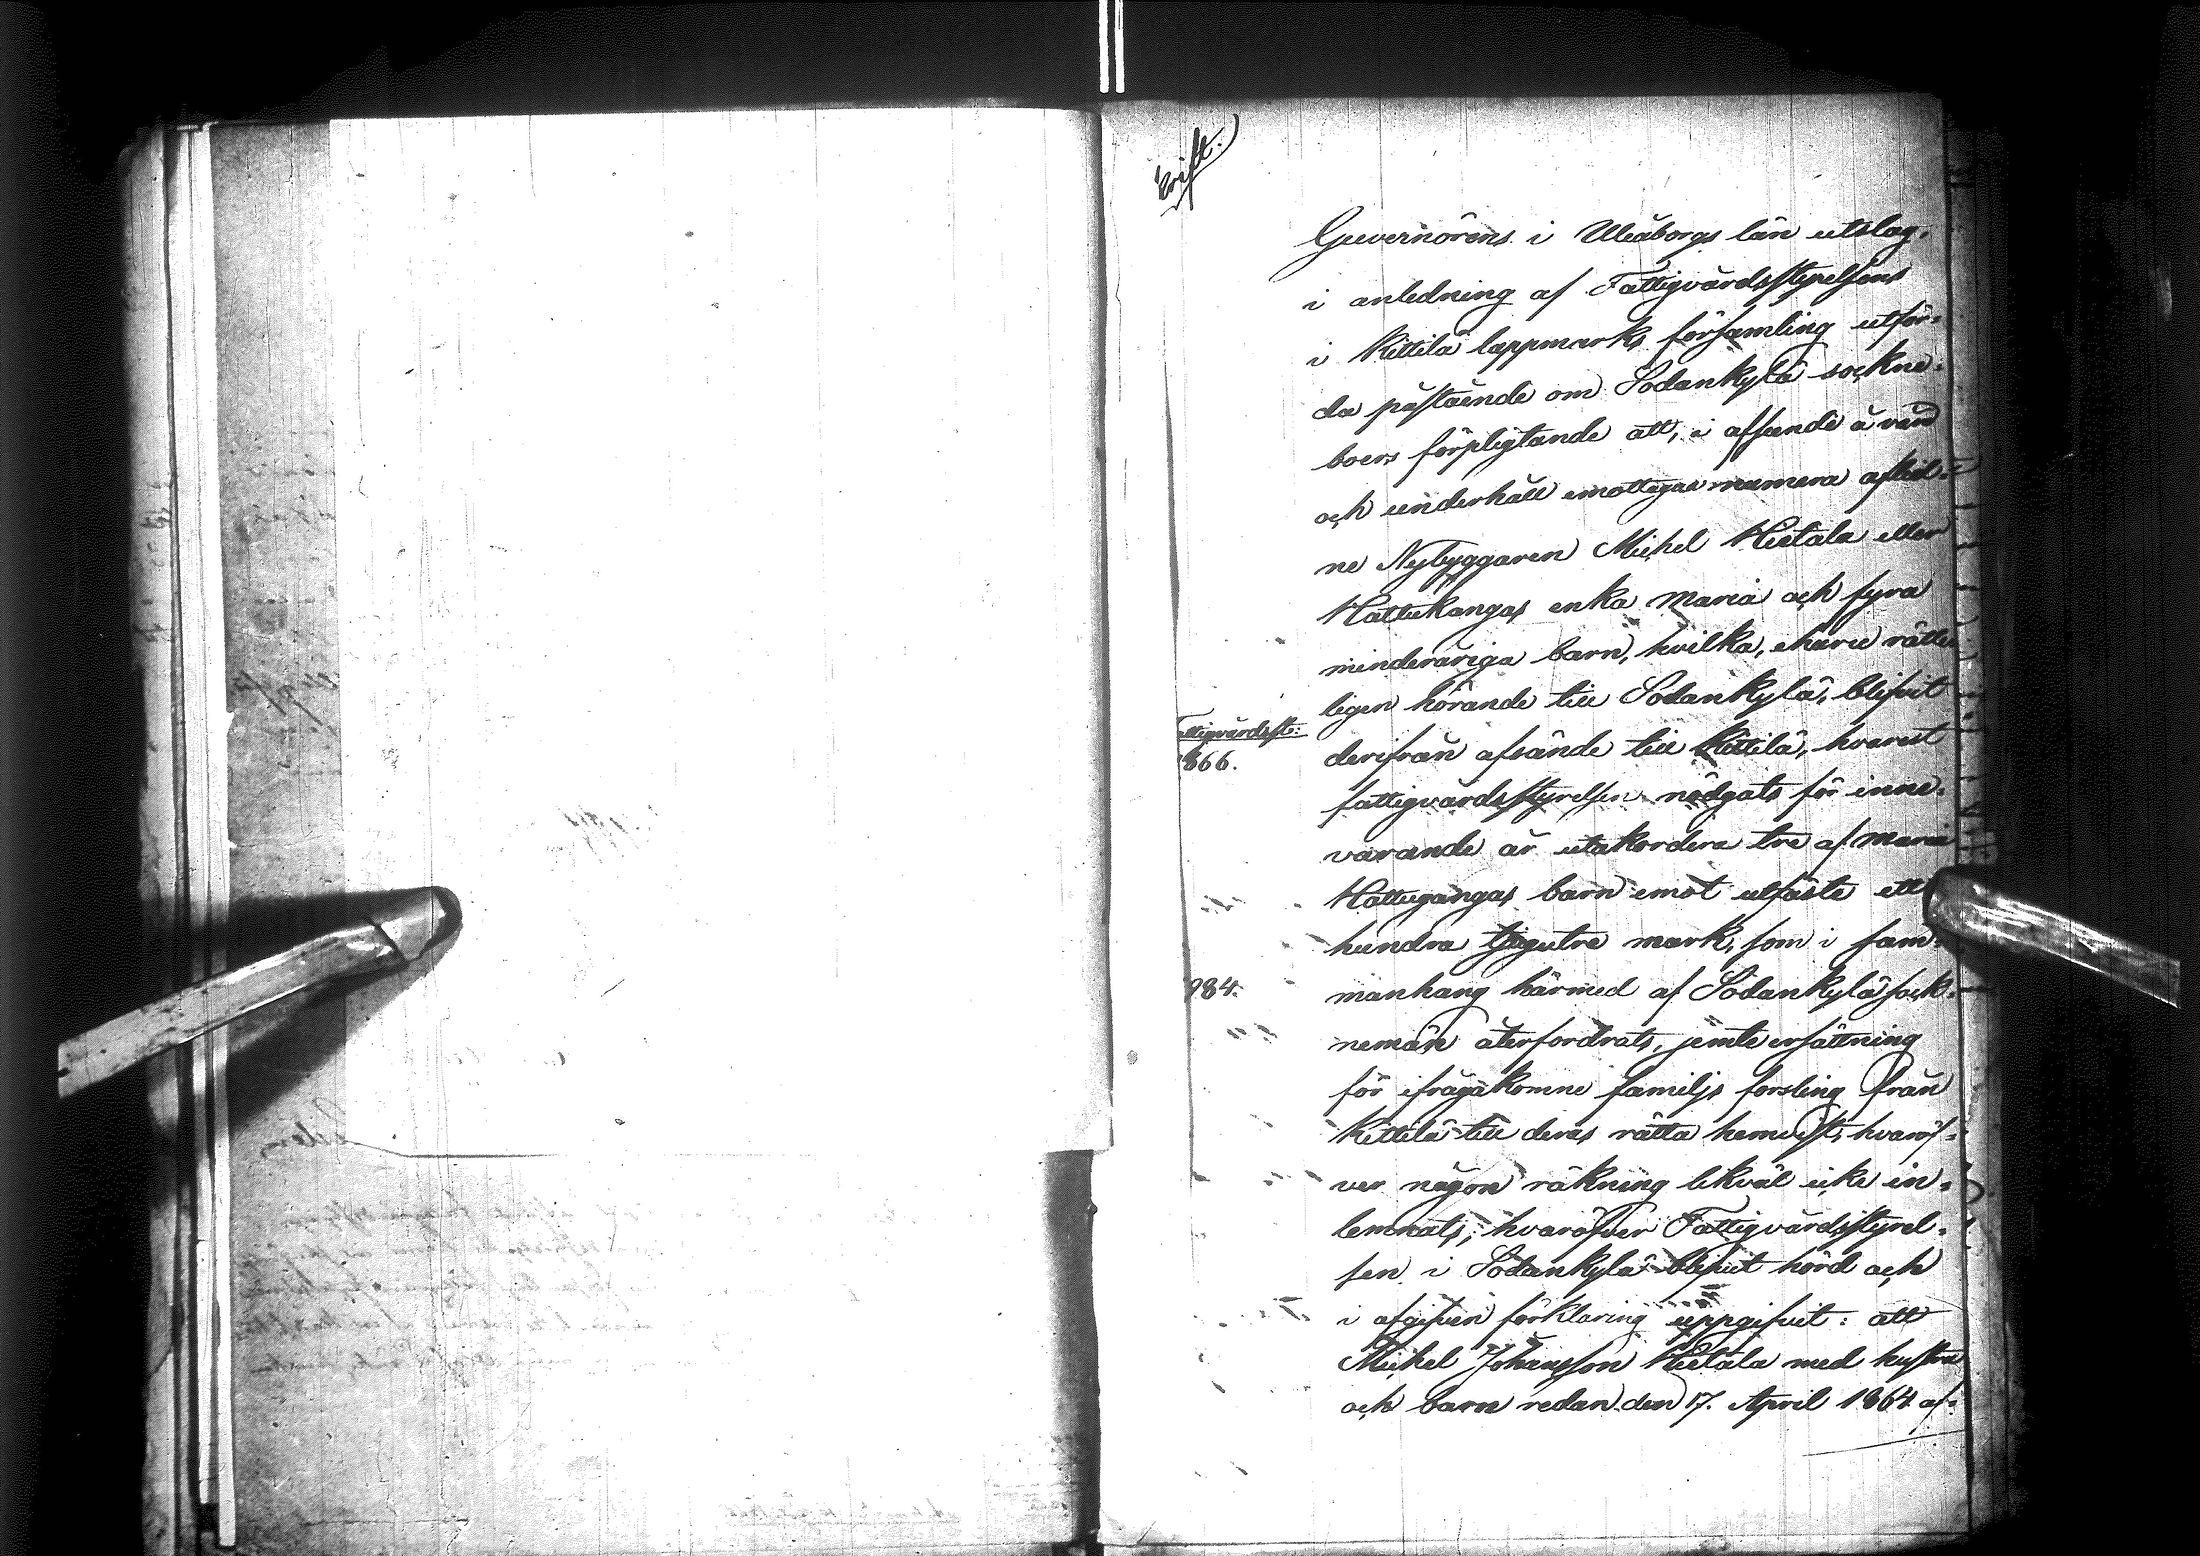 Guvernörens i Uleåborgs län utslag,
i anledning af Fattigvårdsstyrelsens
i Kittilä lappmarks församling utför-
da påstående om Sodankylä sockne-
boers förpligtande att, i afseende å vård
och underhåll emottaga numera aflid-
ne Nybyggaren Michel Hietala eller
Hattukangas enka Maria och fyra
minderåriga barn, hvilka, ehuru rätte-
ligen hörande till Sodankylä, blifvit
Fattigvårdsst:
1866.
derifrån afsände till Kittilä, hvarest
fattigvårdsstyrelsen nödgats för inne-
varande år utakordera tre af Maria
Hattugangas barn emot utfäste ett
hundra tjugutre mark, som i sam-
984.
manhang härmed af Sodankylä sock-
nemän återfordrats, jemte ersättning
för ifrågakomne familjs forsling från
Kittilä till deras rätta hemvist, hvaröf-
ver någon räkning likväl icke in-
lemnats; hvaröfver Fattigvårdsstyrel-
sen i Sodankylä blifvit hörd och
i afgifven förklaring uppgifvit: att
Michel Johansson Hietala med hustru
och barn redan den 17. April 1864 af-